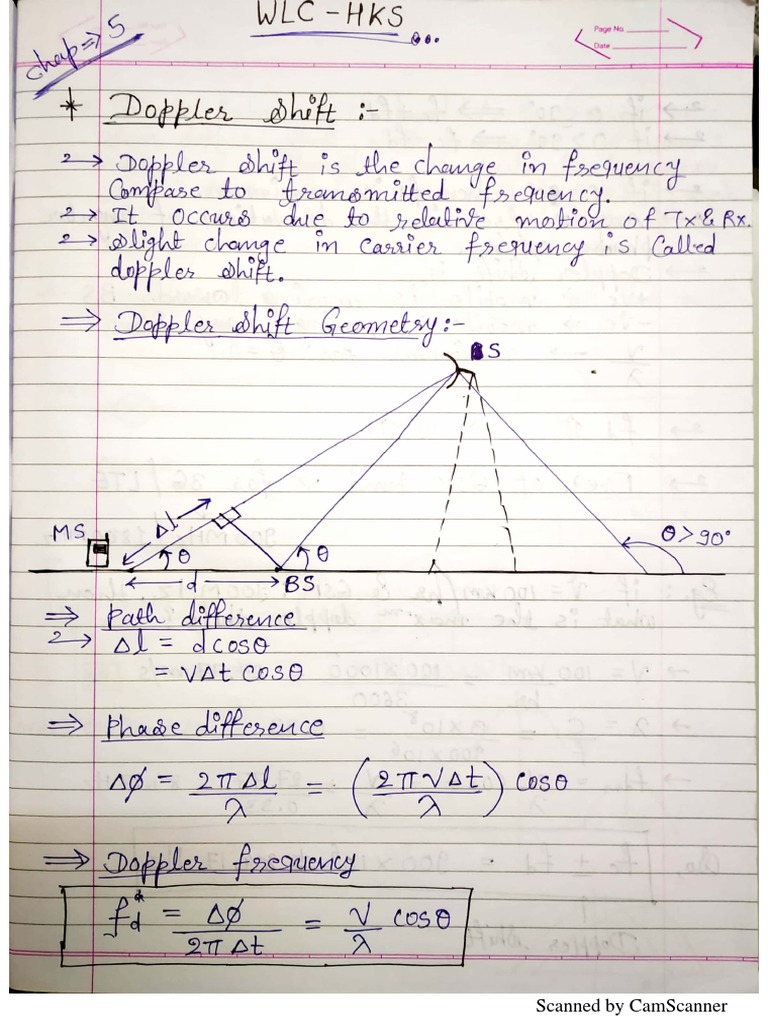 WLC-HKS
Page No.
Date
chap⇒5
* Doppler shift :-
→ Doppler shift is the change in frequency
Compase to transmitted frequency.
→ It occurs due to relative motion of Tx & Rx.
→ slight change in carrier frequency is Called
doppler shift.
⇒ Doppler shift Geometry:-
BS
MS
Δl
θ
θ
θ>90°
d
BS
⇒ path difference
→ Δl = dcosθ
= vΔt cosθ
⇒ Phase difference
Δφ = 2πΔl/λ = (2πvΔt/λ) cosθ
⇒ Doppler frequency
fd* = Δφ/2πΔt = v/λ cosθ
Scanned by CamScanner